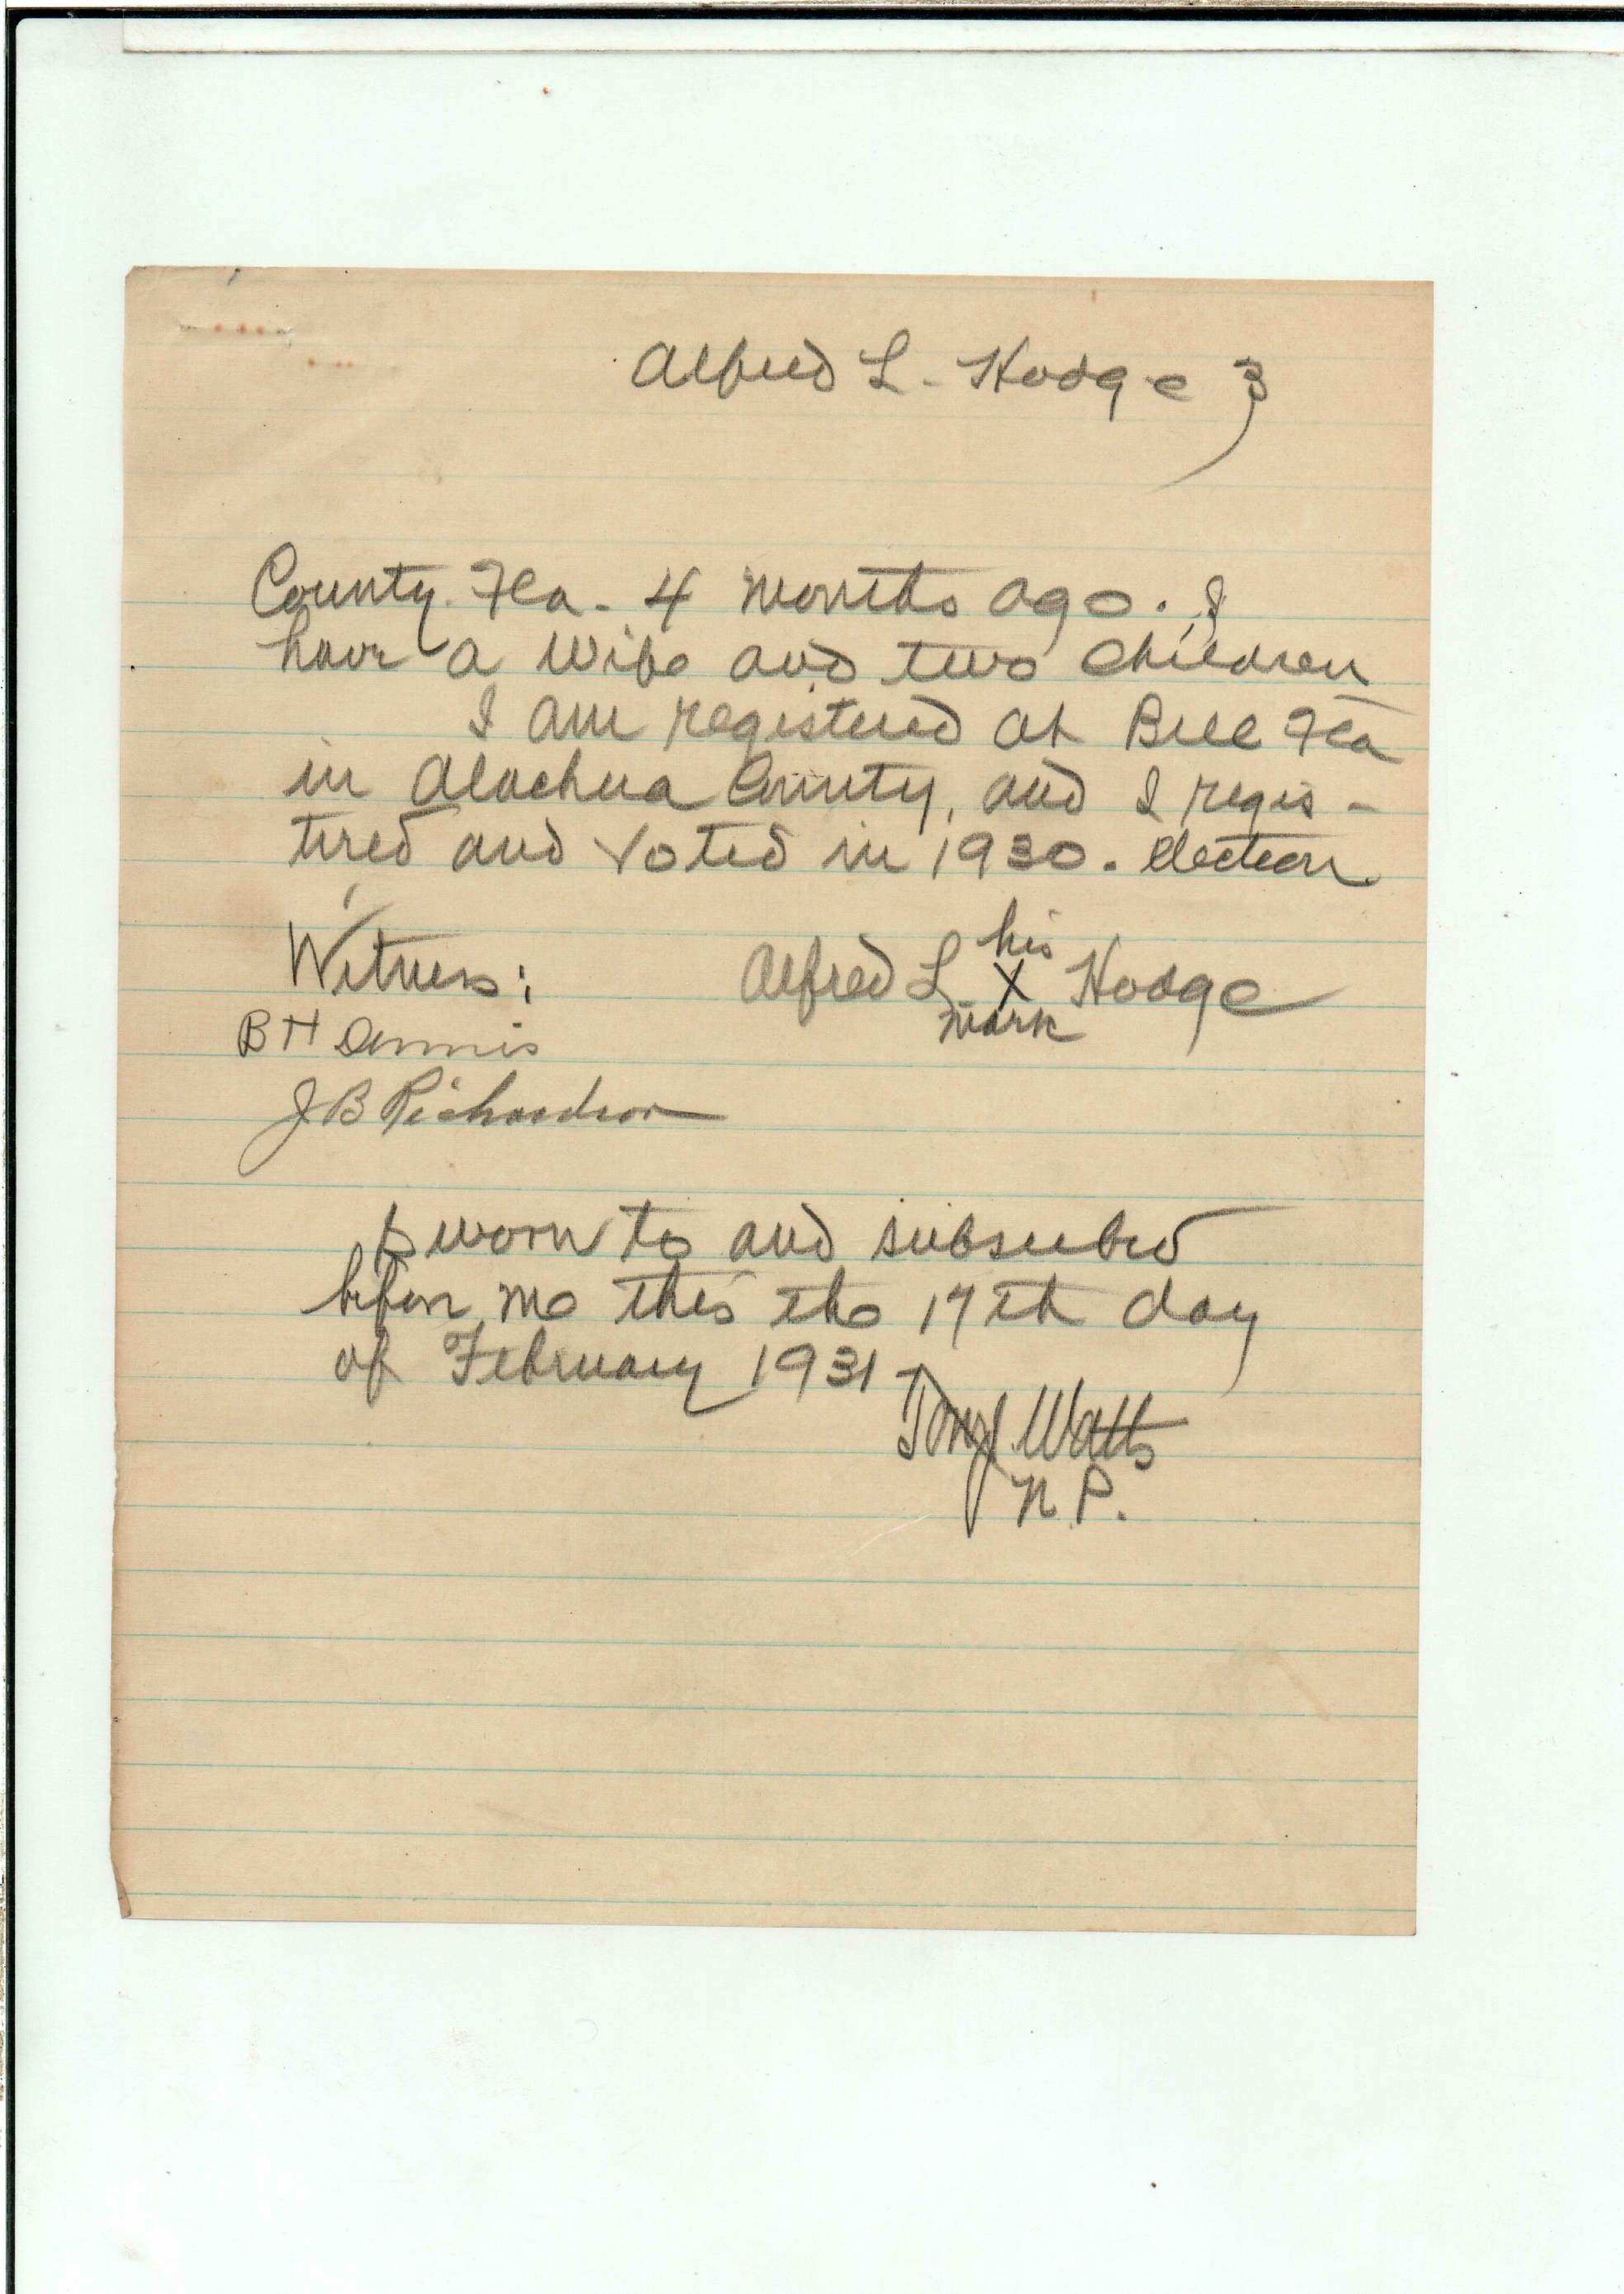 Alfred L. Hodge 3
County Fla. 4 months ago. I
have a wife and two children
I am registered at Bell Fla
in Alachua County, and I regis-
tered and voted in 1930. election
his
Witness: Alfred L X Hodge
mark
B H Dennis
J B Richardson
Sworn to and subscribed
before me this the 17th day
of February 1931
Watts
N.P.